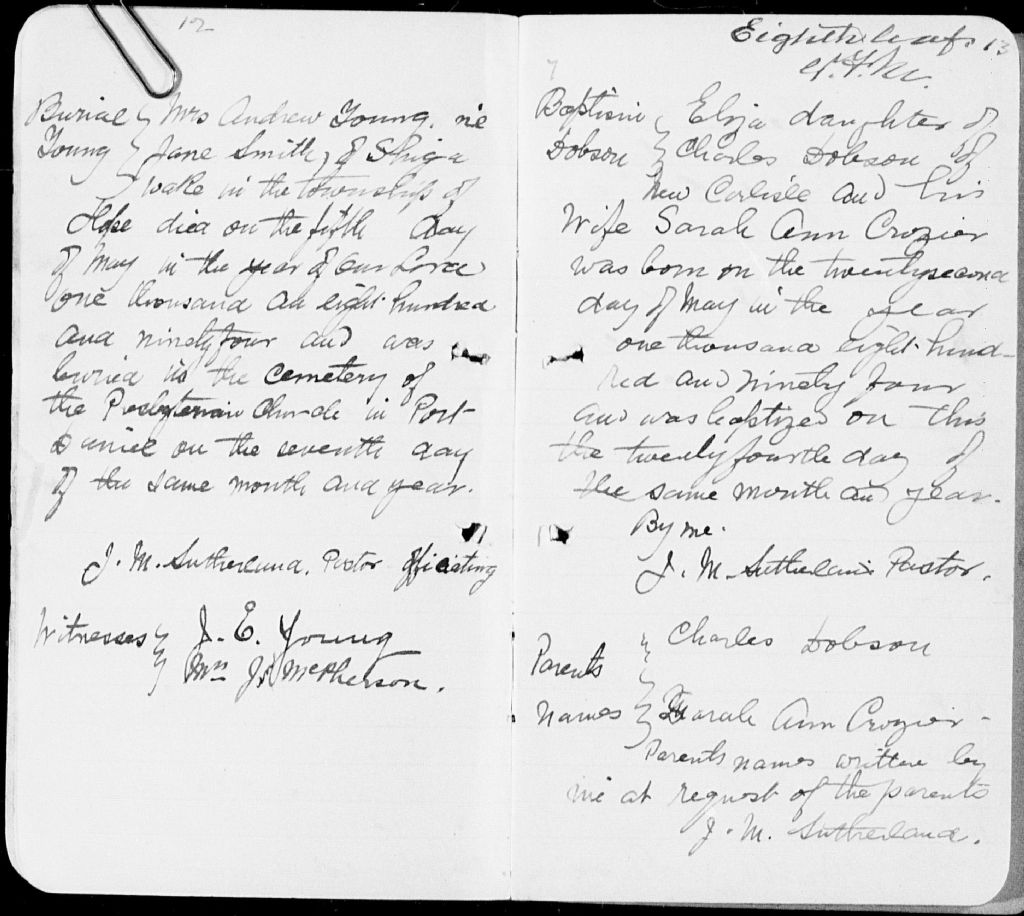 12
Burial } Mrs Andrew Young. né
Young } Jane Smith, of Shiga
wake in the township of
Hope died on the fifth day
of May in the year of our Lord
one thousand an eight hundred
and ninety four and was
buried in the cemetery of
the Presbyterian Church in Port
Daniel on the seventh day
of the same month and year.
J. M. Sutherland, Pastor officiating
Witnesses } J. E. Young
Mrs J. McPherson.
Eighth leaf. 13
7
Baptism } Eliza daughter of
Dobson } Charles Dobson of
New Carlisle and his
Wife Sarah Ann Crozier
was born on the twenty second
day of May in the year
one thousand eight hund-
red and ninety four
and was baptized on this
the twenty fourth day of
the same month and year.
By me.
J. M. Sutherland Pastor.
Charles Dobson
Parents
Names } Sarah Ann Crozier -
Parents names written by
me at request of the parents
J. M. Sutherland.